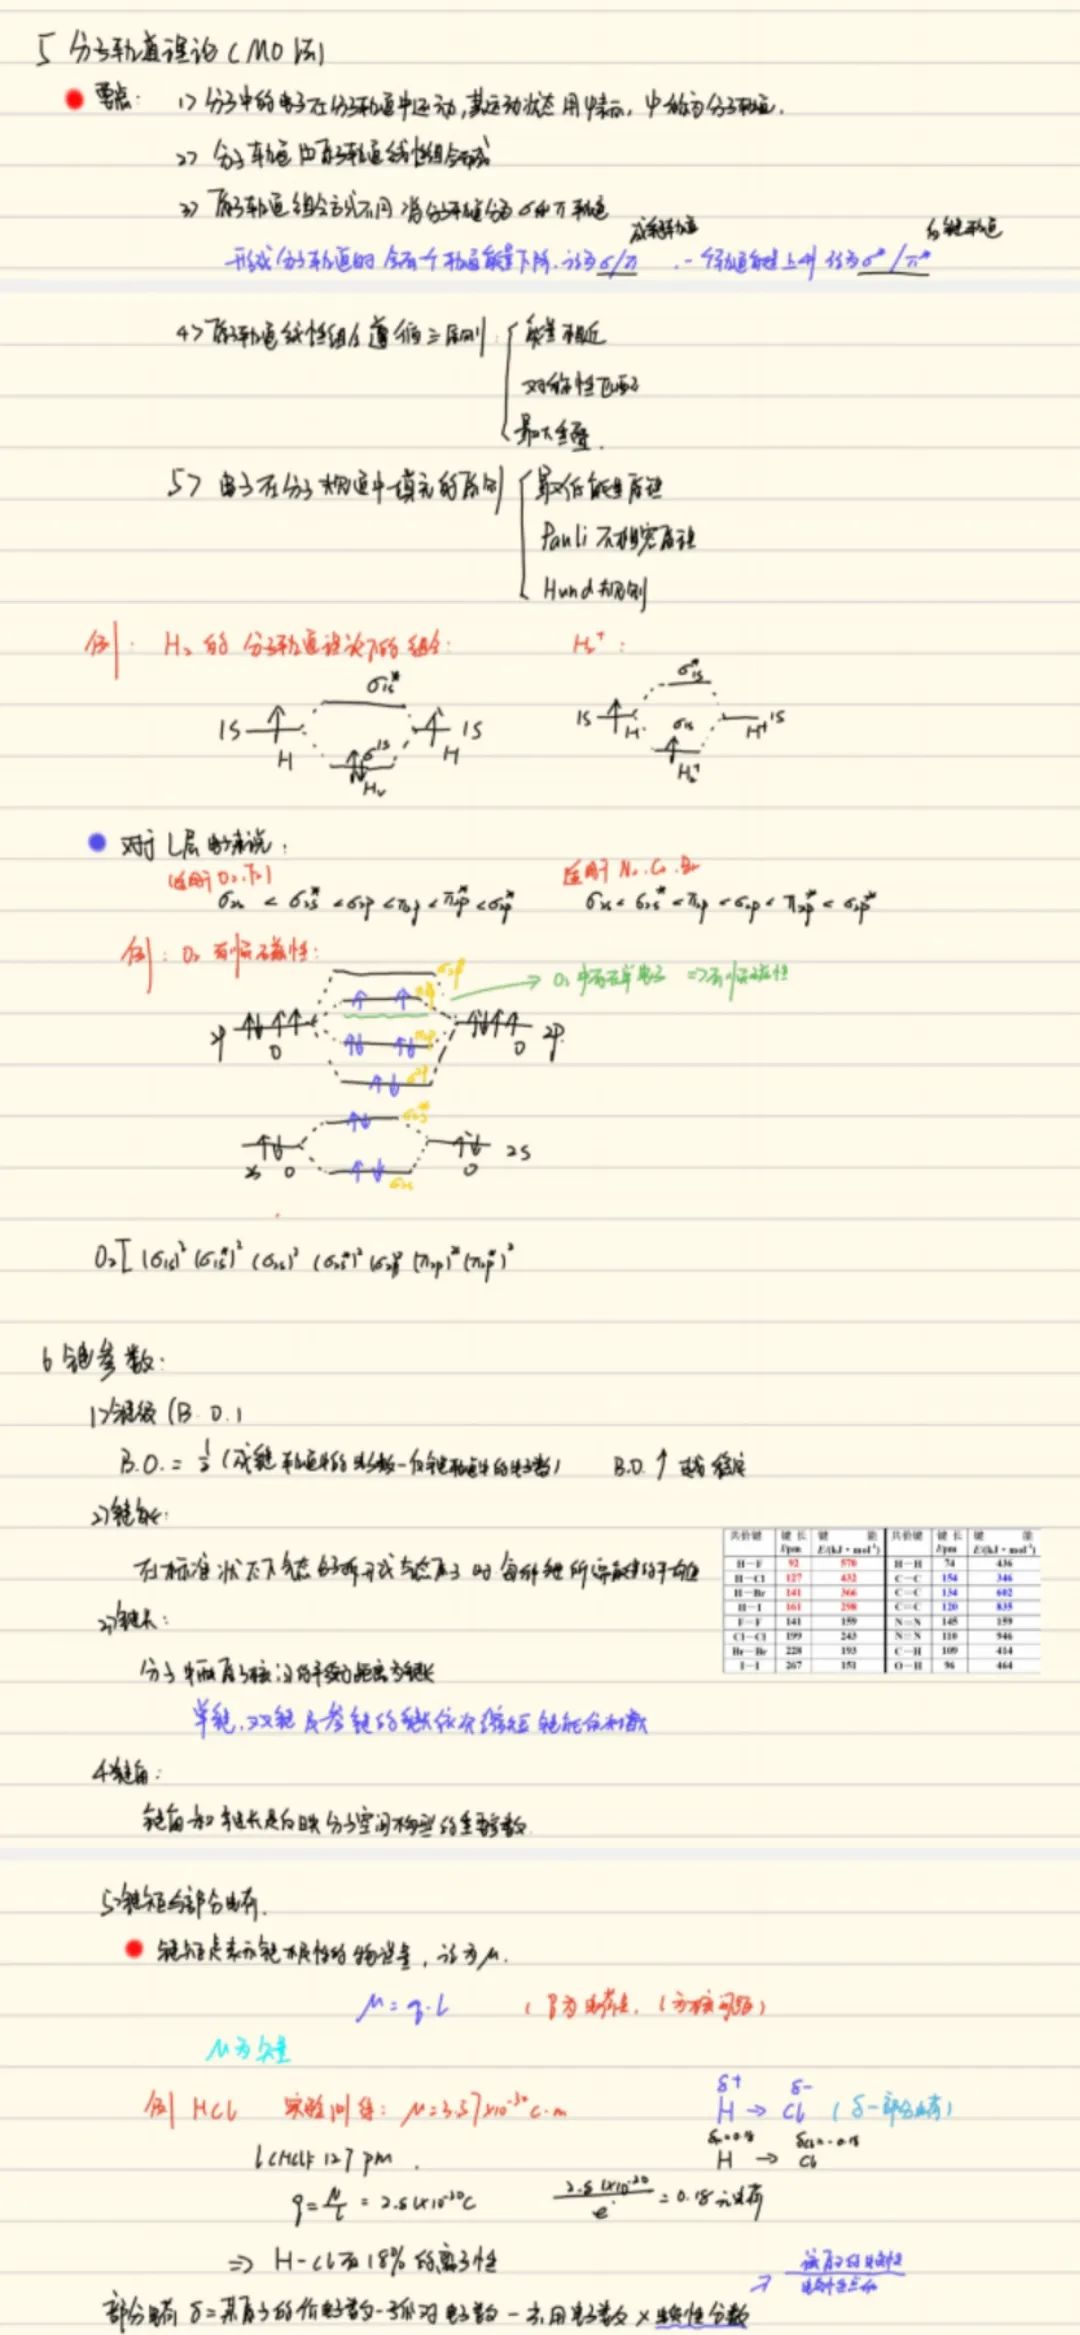 5 分子轨道理论(MO法)
要点: 1> 分子中的电子在分子轨道中运动,其运动状态用ψ表示, ψ称为分子轨道.
2> 分子轨道由原子轨道线性组合而成
3> 原子轨道组合方式不同 将分子轨道分为σ和π轨道
成键轨道 反键轨道
形成分子轨道时 会有一个轨道能量下降,记为σ/π ,一个轨道能量上升 记为σ*/π*
4> 原子轨道线性组合遵循三原则: 能量相近
对称性匹配
最大重叠.
5> 电子在分子轨道中填充的原则 最低能量原理
Pauli不相容原理
Hund规则
例: H₂的分子轨道理论下的组合: H₂⁺:
σ1s* σ1s*
1S 1S 1S σ1s 1S
H σ1s H H H⁺
H₂ H₂⁺
对于L层电子来说:
(适用于O₂.F₂) 适用于N₂.C₂.B₂
σ2s < σ2s* < σ2p < π2p < π2p* < σ2p* σ2s < σ2s* < π2p < σ2p < π2p* < σ2p*
例: O₂有顺磁性:
O₂中存在单电子 => 有顺磁性
2p O O 2p
σ2s*
2s O O 2s
σ2s
O₂[(σ1s)²(σ1s*)²(σ2s)²(σ2s*)²(σ2p)²(π2p)⁴(π2p*)²
6 键参数:
1>键级(B.O.)
B.O. = 1/2 (成键轨道中的电子数-反键轨道中的电子数) B.O.↑ 越稳定
2>键能:
在标准状态下气态分子拆开成气态原子时 每种键所需能量的平均值
3>键长:
分子中两原子核间的平衡距离为键长
单键,双键及叁键的键长依次缩短 键能依次增大
共价键 键长 l/pm 键能 E/(kJ·mol⁻¹) 共价键 键长 l/pm 键能 E/(kJ·mol⁻¹)
H—F 92 570 H—H 74 436
H—Cl 127 432 C—C 154 346
H—Br 141 366 C=C 134 602
H—I 161 298 C≡C 120 835
F—F 141 159 N—N 145 159
Cl—Cl 199 243 N≡N 110 946
Br—Br 228 193 C—H 109 414
I—I 267 151 O—H 96 464
4>键角:
键角和键长是反映分子空间构型的重要参数.
5>键矩与部分电荷.
键矩是表示键极性的物理量, 记为μ.
μ=q·l (q为电荷量, l为核间距)
μ为矢量
例 HCl 实验测得: μ=3.57×10⁻³⁰C·m
δ+ δ-
H → Cl (δ-部分电荷)
l(HCl)=127 pm.
δH=0.18 δCl=-0.18
H → Cl
q=μ/l = 2.81×10⁻²⁰C 2.81×10⁻²⁰/e = 0.18元电荷
=> H-Cl有18%的离子性
该原子的电负性
电负性总和
部分电荷 δ=某原子的价电子数-孤对电子数-共用电子数×电负性分数